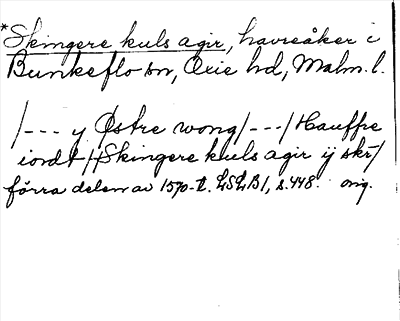 *Skingere kuls agir, havreåker i
Bunkeflo sn, Oxie hd, Malm. l.
/--- y Østre wong/---/Hauffre
iordt/Skingere kuls agir ÿ skr/
förra delen av 1570-t. LSLB1, s. 448. orig.